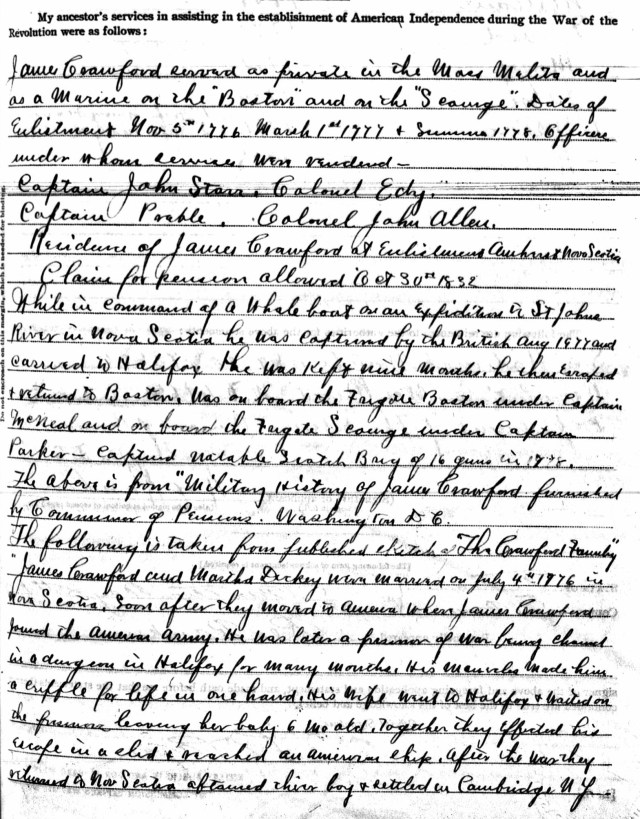 My ancestor's services in assisting in the establishment of American Independence during the War of the
Revolution were as follows:
James Crawford served as private in the Mass Melita and
as a Marine on the "Boston" and on the "Scourge". Dates of
Enlistment Nov 5th 1776 March 1st 1777 & Summer 1778. Officers
under whom services were rendered —
Captain John Starr. Colonel Edy.
Captain Preble. Colonel John Allen.
Residence of James Crawford at Enlistment Amherst Nova Scotia
Claim for pension allowed Oct 30th 1832
While in command of a Whale boat on an Expidition to St Johns
River in Nova Scotia he was captured by the British Aug 1777 and
carried to Halifax. He was Kept nine months. he then Escaped
& returned to Boston. Was on board the Frigate Boston under Captain
McNeal and on board the Frigate Scourge under Captain
Parker — Captured Scotch Brig of 16 guns in 1778.
The above is from "Military History of James Crawford furnished
by Commissioner of Pensions. Washington D.C.
The following is taken from published sketch of "The Crawford Family"
"James Crawford and Martha Dickey were married on July 4th 1776 in
Nova Scotia. Soon after they moved to America where James Crawford
joined the American Army. He was later a prisoner of war being chained
in a dungeon in Halifax for many months. His manacles made him
a cripple for life in one hand. His Wife went to Halifax & waited on
the prisoners leaving her baby 6 mo old. Together they effected his
Escape in a & reached an American ship. After the war they
returned to Nov Scotia obtained their boy & settled in Cambridge N.Y.